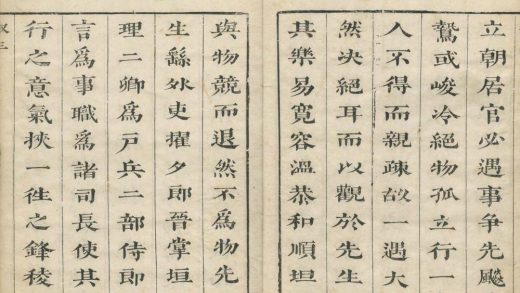 立朝居官必遇事爭先飈
鶩或峻冷絕物孤立行一
人不得而親疎故一遇大
然决絕耳而以觀於先生
其樂易寬容溫恭和順坦
與物競而退然不為物先
生繇外吏擢夕郎晉掌垣
理二卿為戶兵二部侍郎
言為事職為諸司長使其
行之意氣挾一徃之鋒稜